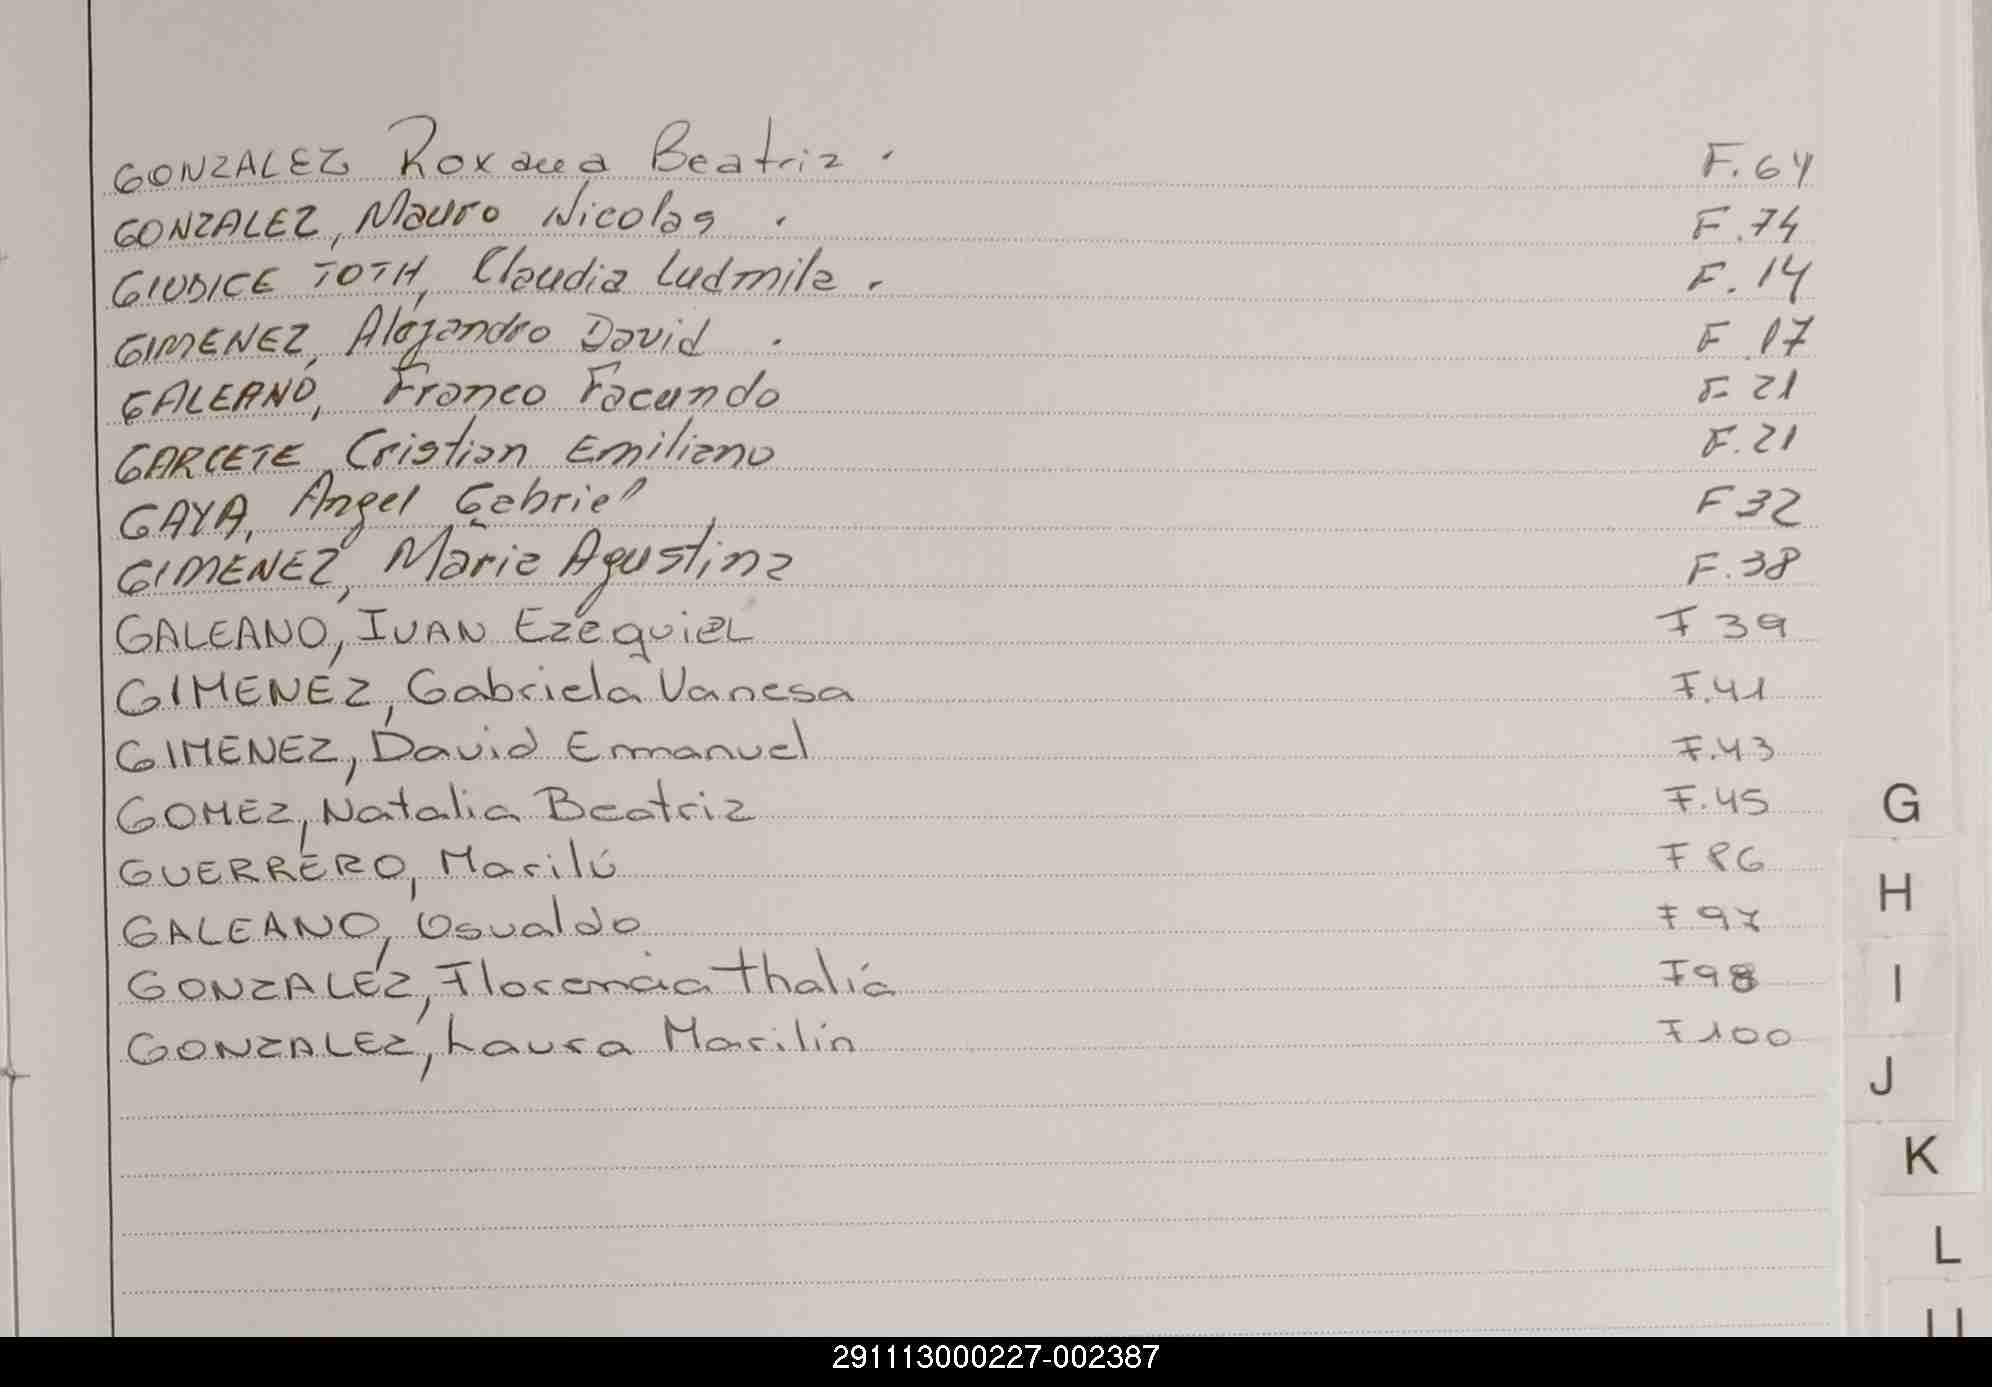 GONZALEZ Roxana Beatriz . F.64
GONZALEZ, Mauro Nicolas . F.74
GIUDICE TOTH, Claudia Ludmila . F.14
GIMENEZ, Alejandro David . F 17
GALEANO, Franco Facundo F. 21
GARCETE, Cristian Emiliano F.21
GAYA, Angel Gabriel F 32
GIMENEZ, Maria Agustina F.38
GALEANO, IVAN EzequieL F 39
GIMENEZ, Gabriela Vanesa F.41
GIMENEZ, David Emmanuel F.43
GOMEZ, Natalia Beatriz F.45
GUERRERO, Marilú F 86
GALEANO, Osvaldo F 97
GONZALEZ, Florencia Thalia F98
GONZALEZ, Laura Marilin F100
G
H
I
J
K
L
291113000227-002387